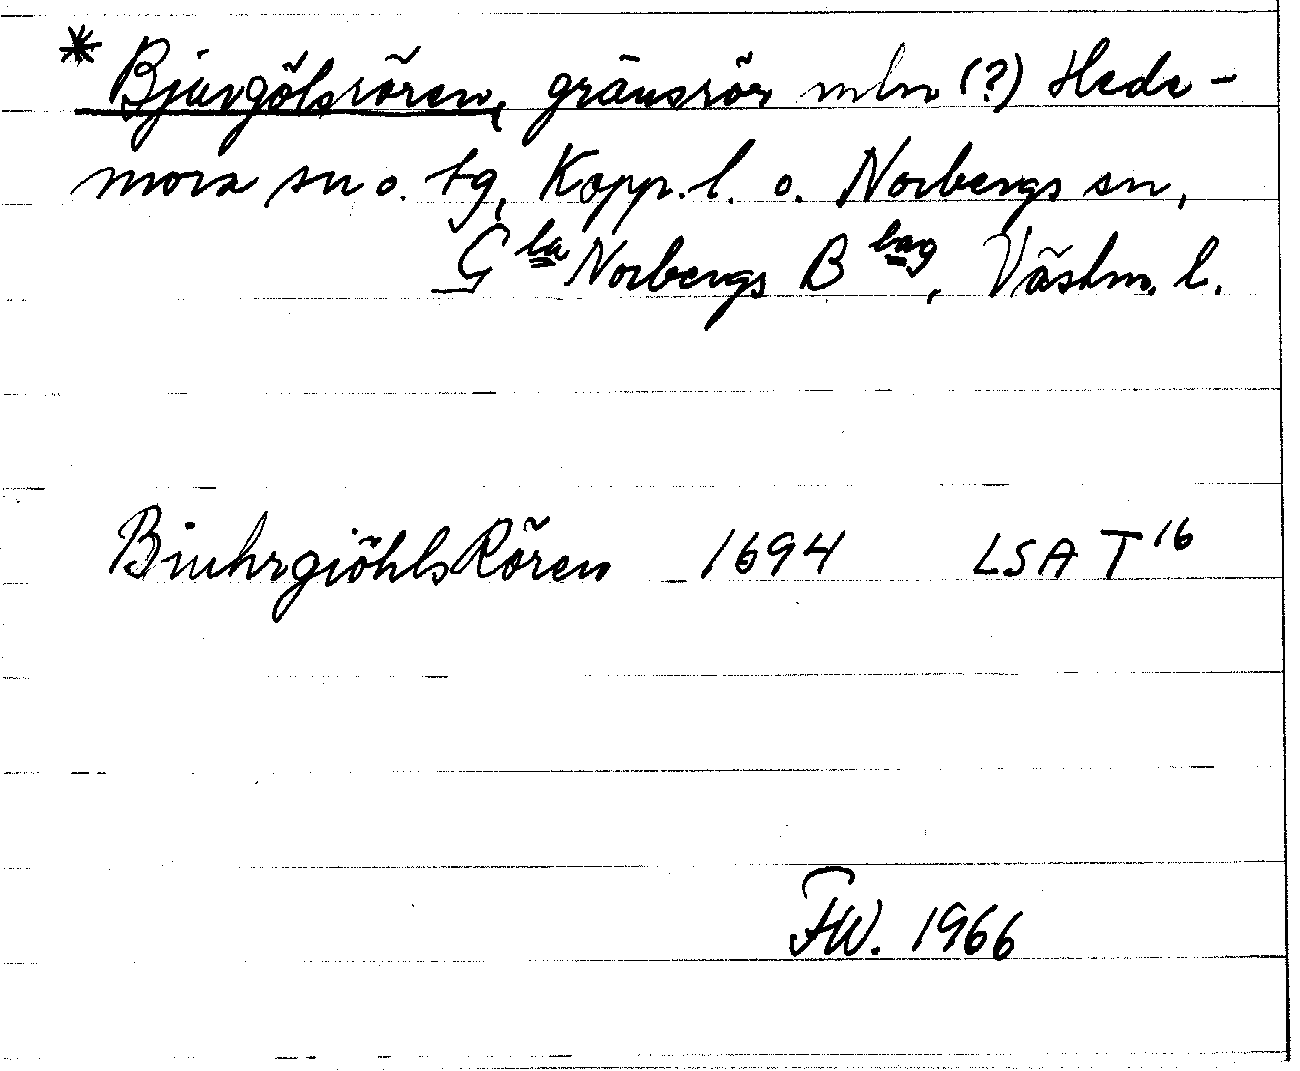 * Bjurgölsrören, gränsrör mln (?) Hede-
mora sn o. tg, Kopp. l. o. Norbergs sn,
G^la Norbergs B^lag, Västm. l.
BiuhrgiöhlsRören 1694 LSA T^16
FW. 1966